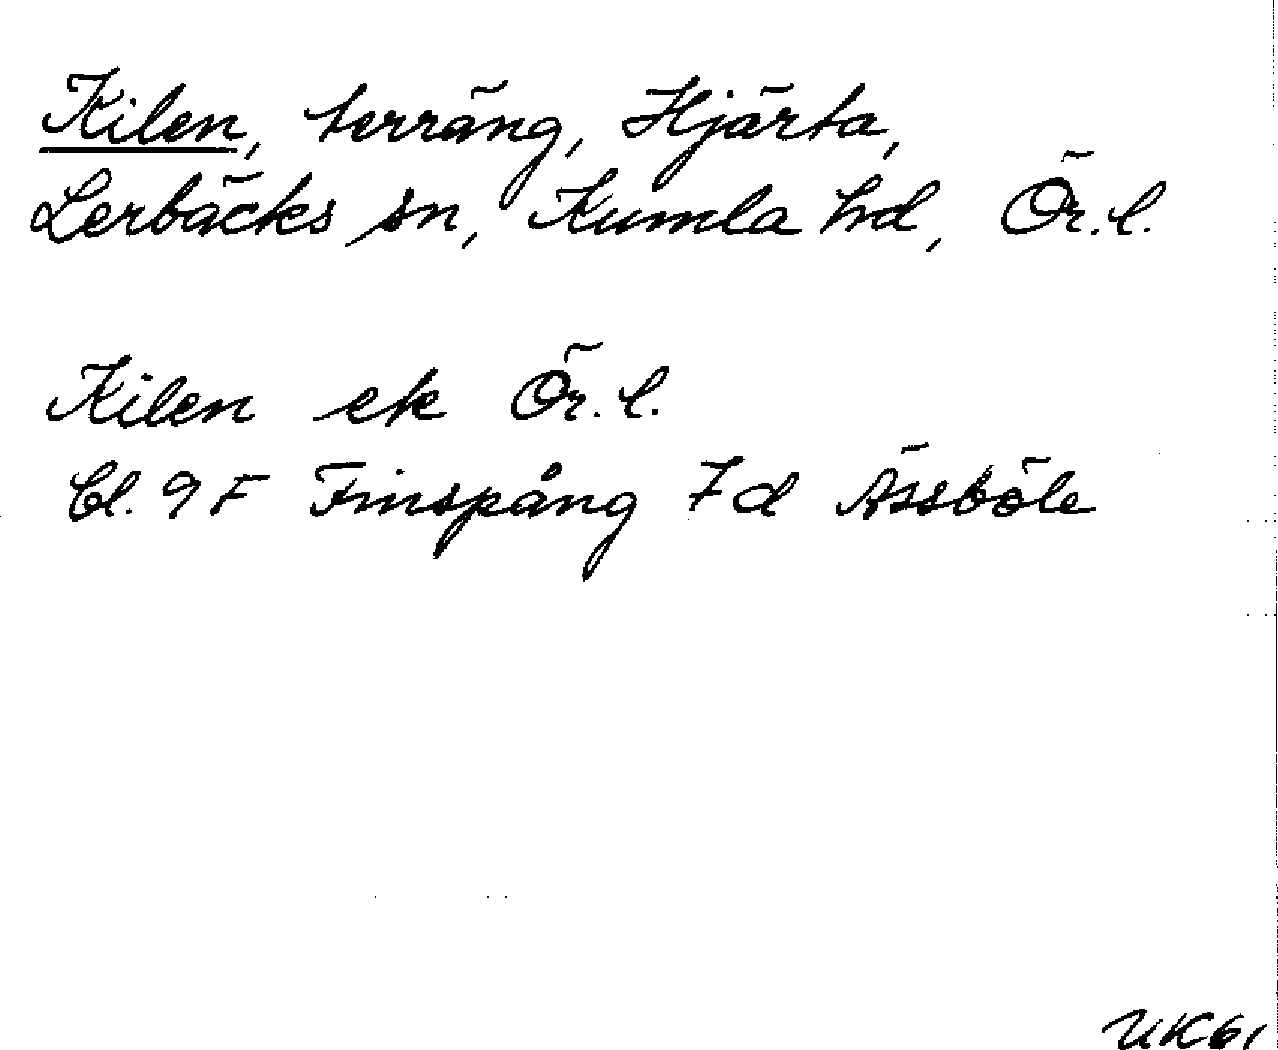 Kilen, terräng, Hjärta,
Lerbäcks sn, Kumla hd, Ör.l.
Kilen ek Ör.l.
bl. 9F Finspång 7d Ässböle
UK61